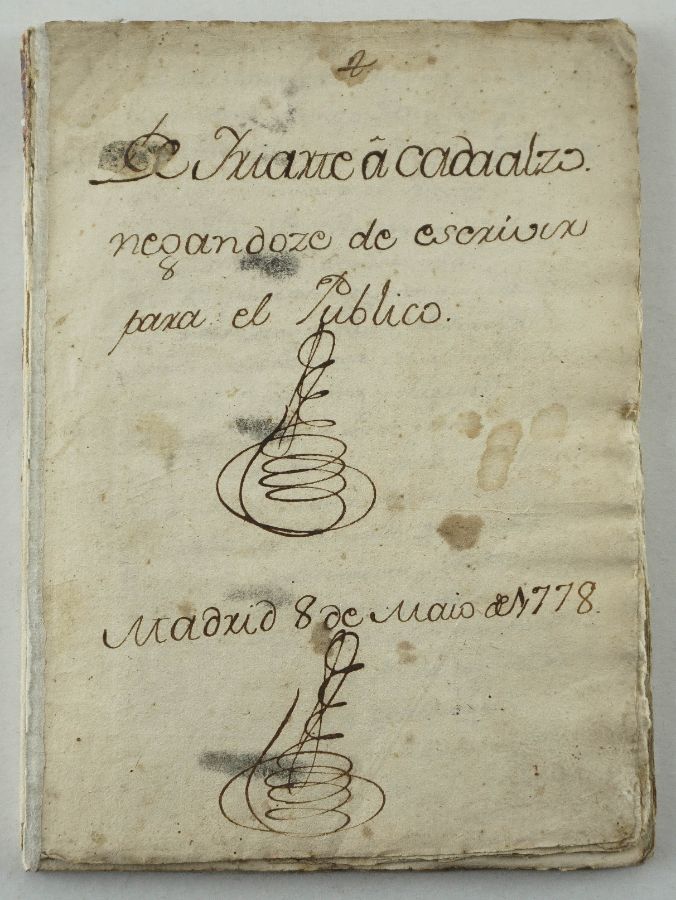 2
D Yriarte â Cadaalzo.
negandoze de escrivir
para el Publico.
Madrid 8 de Maio de 1778.